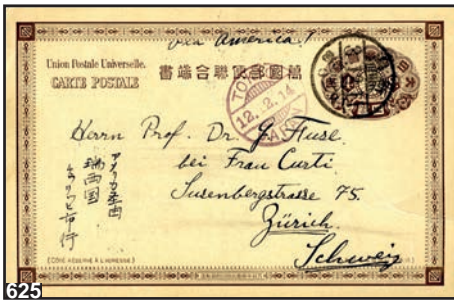 via America!
Union Postale Universelle.
CARTE POSTALE
萬國郵便聯合端書
TOKIO
12.2.14
JAPAN
Herrn Prof. Dr.
bei Frau Curti
Susenbergstrasse 75.
Zürich.
Schweiz
アメリカ経由
瑞西国
(CÔTÉ RÉSERVÉ À L'ADRESSE)
625